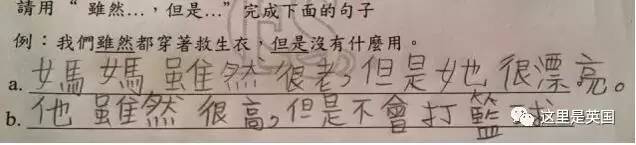 請用 “ 雖然…，但是…” 完成下面的句子
例：我們雖然都穿著救生衣，但是沒有什麼用。
a. 女馬 女馬 雖然 很老，但是她 很漂亮。
b. 他 雖然 很高，但是不會 打 籃 球
这里是英国